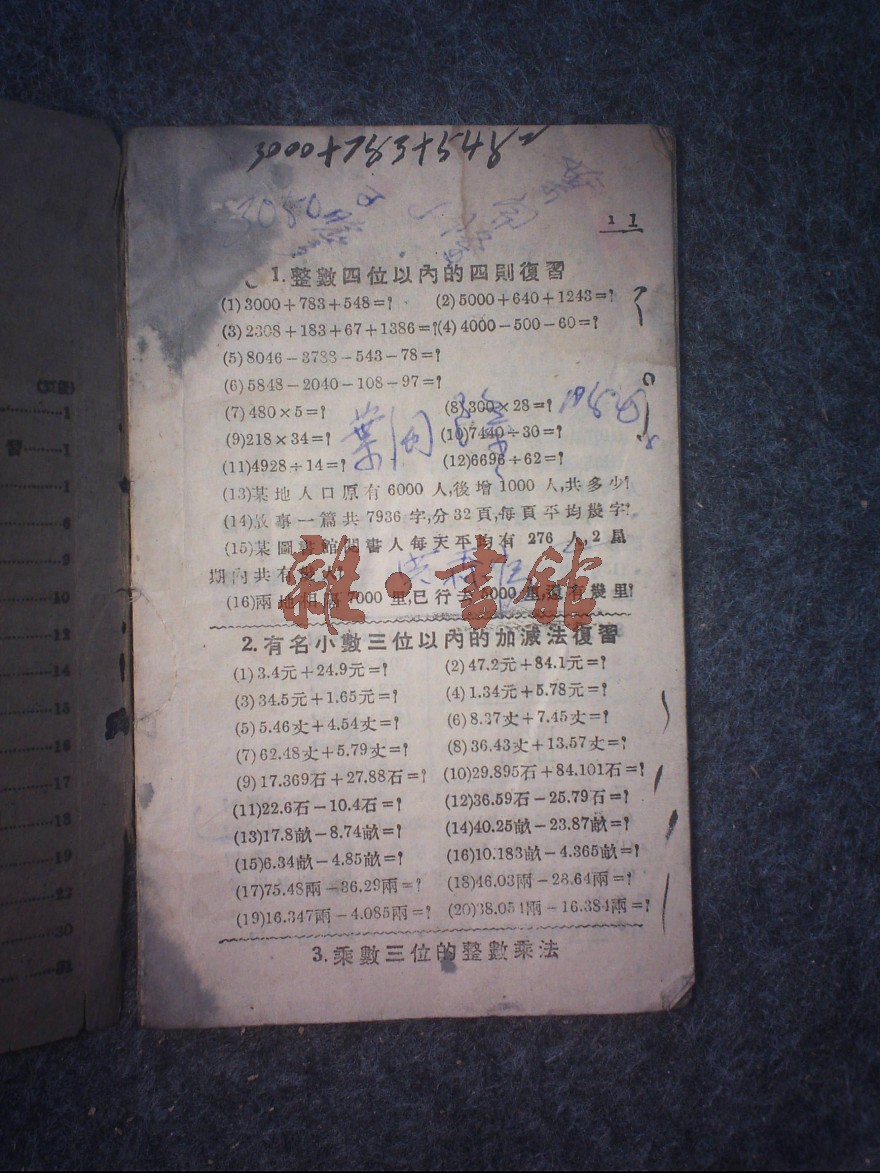 3000+783+548=
3080
1
1.整數四位以內的四則復習
(1)3000+783+548=?
(2)5000+640+1243=?
(3)2308+183+67+1386=?
(4)4000-500-60=?
(5)8046-3788-543-78=?
(6)5848-2040-108-97=?
(7)480×5=?
(8)300×28=?
(9)218×34=?
(10)7440÷30=?
(11)4928÷14=?
(12)6696÷62=?
(13)某地人口原有6000人,後增1000人,共多少?
(14)故事一篇共7936字,分32頁,每頁平均幾字?
(15)某圖書館閱書人每天平均有276人,2星
期內共有
(16)兩地相隔7000里,已行去5000里,還有幾里?
雜·書館
2.有名小數三位以內的加減法復習
(1)3.4元+24.9元=?
(2)47.2元+84.1元=?
(3)34.5元+1.65元=?
(4)1.34元+5.78元=?
(5)5.46丈+4.54丈=?
(6)8.37丈+7.45丈=?
(7)62.48丈+5.79丈=?
(8)36.43丈+13.57丈=?
(9)17.369石+27.88石=?
(10)29.895石+84.101石=?
(11)22.6石-10.4石=?
(12)36.59石-25.79石=?
(13)17.8畝-8.74畝=?
(14)40.25畝-23.87畝=?
(15)6.34畝-4.85畝=?
(16)10.183畝-4.365畝=?
(17)75.48兩-36.29兩=?
(18)46.03兩-28.64兩=?
(19)16.347兩-4.085兩=?
(20)38.051兩-16.384兩=?
3.乘數三位的整數乘法
(頁數)
1
習……1
1
6
9
10
12
14
15
16
17
18
19
22
30
31